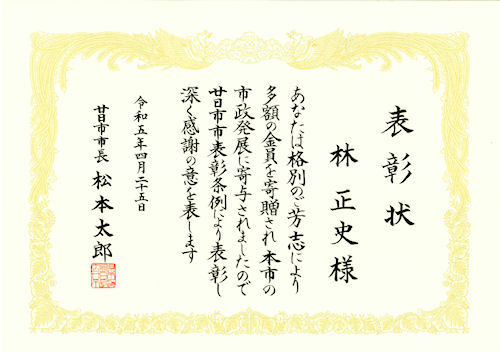 表彰状
林正史様
あなたは格別のご芳志により
多額の金員を寄贈され本市の
市政発展に寄与されましたので
廿日市市表彰条例により表彰し
深く感謝の意を表します
令和五年四月二十五日
廿日市市長 松本太郎